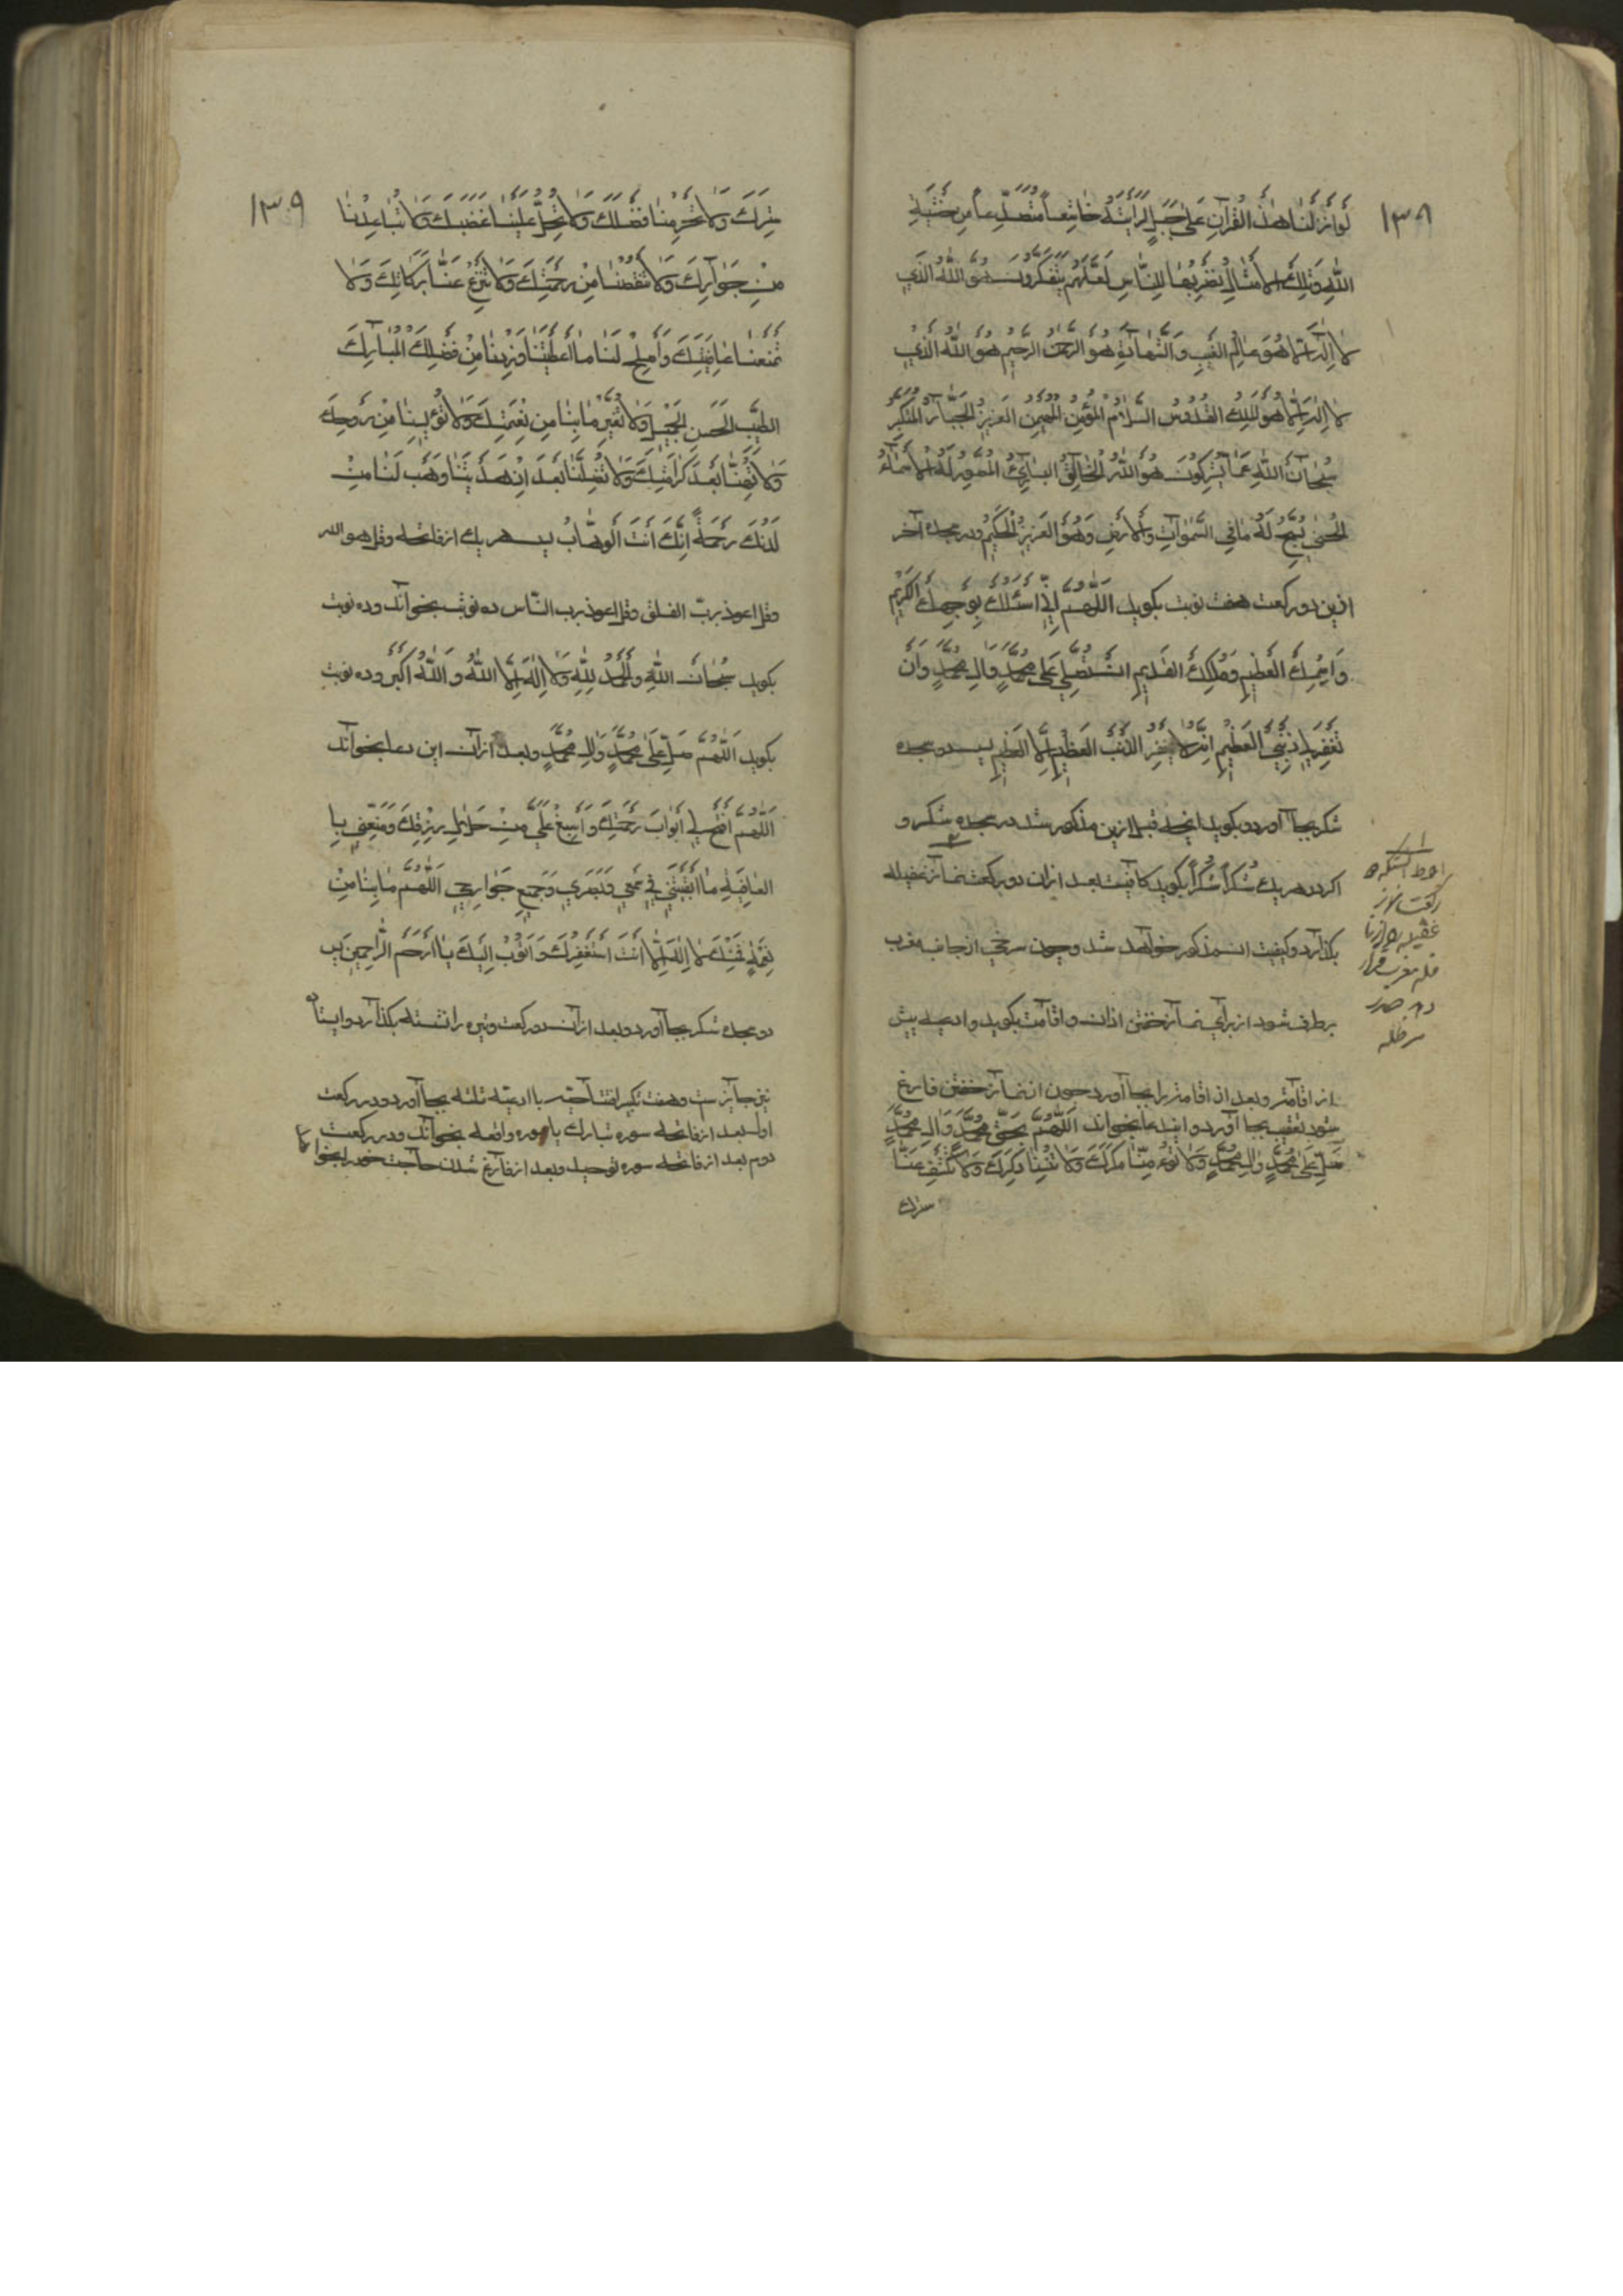 ۱۳۸
لَوْ اَنْزَلْنَا هٰذَا الْقُرْآنَ عَلٰی جَبَلٍ لَرَاَیْتَهُ خٰاشِعاً مُتَصَدِّعاً مِنْ خَشْیَةِ
اللّٰهِ وَتِلْكَ الْاَمْثٰالُ نَضْرِبُهٰا لِلنّٰاسِ لَعَلَّهُمْ یَتَفَكَّرُونَ هُوَ اللّٰهُ الَّذِی
لٰا اِلٰهَ اِلّٰا هُوَ عٰالِمُ الْغَیْبِ وَالشَّهٰادَةِ هُوَ الرَّحْمٰنُ الرَّحِیمُ هُوَ اللّٰهُ الَّذِی
لٰا اِلٰهَ اِلّٰا هُوَ الْمَلِكُ الْقُدُّوسُ السَّلٰامُ الْمُؤْمِنُ الْمُهَیْمِنُ الْعَزِیزُ الْجَبّٰارُ الْمُتَكَبِّرُ
سُبْحٰانَ اللّٰهِ عَمّٰا یُشْرِكُونَ هُوَ اللّٰهُ الْخٰالِقُ الْبٰارِئُ الْمُصَوِّرُ لَهُ الْاَسْمٰاءُ
الْحُسْنٰی یُسَبِّحُ لَهُ مٰا فِی السَّمٰوٰاتِ وَالْاَرْضِ وَهُوَ الْعَزِیزُ الْحَكِیمُ و در سجده آخر
ازین دو ركعت هفت نوبت بكوید اَللّٰهُمَّ اِنِّی اَسْئَلُكَ بِوَجْهِكَ الْكَرِیمِ
وَاسْمِكَ الْعَظِیمِ وَمُلْكِكَ الْقَدِیمِ اَنْ تُصَلِّیَ عَلٰی مُحَمَّدٍ وَالِ مُحَمَّدٍ وَاَنْ
تَغْفِرَ لِی ذَنْبِیَ الْعَظِیمَ اِنَّهُ لٰا یَغْفِرُ الذَّنْبَ الْعَظِیمَ اِلَّا الْعَظِیمُ پس دو سجده
شكر بجا آورد و بكوید انچه قبل ازین مذكور شد در سجده شكر و
اكر در هر یك شُكْراً شُكْراً بكوید كافیست بعد ازان دو ركعت نماز غفیله
بكذارد و كیفیت آن مذكور خواهد شد و چون سرخی از جانب مغرب
برطرف شود از برای نماز خفتن اذان و اقامت بكوید و ادعیه پیش
از اقامة و بعد از اقامة را بجا آورد چون از نماز خفتن فارغ
شود تعقیب بجا آورد و این دعا بخواند اَللّٰهُمَّ بِحَقِّ مُحَمَّدٍ وَالِ مُحَمَّدٍ
صَلِّ عَلٰی مُحَمَّدٍ وَالِ مُحَمَّدٍ وَلٰا تُؤْمِنّٰا مَكْرَكَ وَلٰا تُنْسِنٰا ذِكْرَكَ وَلٰا تَكْشِفْ عَنّٰا
سترك
احوط آنستكه
ركعت نماز
غفیله
مغرب قرار
۱۳۹
سِتْرَكَ وَلٰا تَحْرِمْنٰا فَضْلَكَ وَلٰا تُحِلَّ عَلَیْنٰا غَضَبَكَ وَلٰا تُبٰاعِدْنٰا
مِنْ جِوٰارِكَ وَلٰا تَنْقُصْنٰا مِنْ رَحْمَتِكَ وَلٰا تَنْزِعْ عَنّٰا بَرَكٰاتِكَ وَلٰا
تَمْنَعْنٰا عٰافِیَتَكَ وَاَصْلِحْ لَنٰا مٰا اَعْطَیْتَنٰا وَزِدْنٰا مِنْ فَضْلِكَ الْمُبٰارَكِ
الطَّیِّبِ الْحَسَنِ الْجَمِیلِ وَلٰا تُغَیِّرْ مٰا بِنٰا مِنْ نِعْمَتِكَ وَلٰا تُؤْیِسْنٰا مِنْ رَوْحِكَ
وَلٰا تُهِنّٰا بَعْدَ كَرٰامَتِكَ وَلٰا تُضِلَّنٰا بَعْدَ اِذْ هَدَیْتَنٰا وَهَبْ لَنٰا مِنْ
لَدُنْكَ رَحْمَةً اِنَّكَ اَنْتَ الْوَهّٰابُ پس هر یك از فاتحه و قل هو الله
و قل اعوذ برب الفلق و قل اعوذ برب النّاس ده نوبت بخواند و ده نوبت
بكوید سُبْحٰانَ اللّٰهِ وَالْحَمْدُ لِلّٰهِ وَلٰا اِلٰهَ اِلَّا اللّٰهُ وَ اللّٰهُ اَكْبَرُ و ده نوبت
بكوید اَللّٰهُمَّ صَلِّ عَلٰی مُحَمَّدٍ وَالِ مُحَمَّدٍ و بعد از آن این دعا بخواند
اَللّٰهُمَّ افْتَحْ لِی اَبْوٰابَ رَحْمَتِكَ وَاَسْبِغْ عَلَیَّ مِنْ حَلٰالِ رِزْقِكَ وَمَتِّعْنِی بِا
الْعٰافِیَةِ مٰا اَبْقَیْتَنِی فِی سَمْعِی وَبَصَرِی وَجَمِیعِ جَوٰارِحِی اَللّٰهُمَّ مٰا بِنٰا مِنْ
نِعْمَةٍ فَمِنْكَ لٰا اِلٰهَ اِلّٰا اَنْتَ اَسْتَغْفِرُكَ وَ اَتُوبُ اِلَیْكَ یٰا اَرْحَمَ الرّٰاحِمِینَ پس
دو سجده شكر بجا آورد و بعد از آن دو ركعت وتیره را نشسته بكذارد و ایستاده
نیز جایز ست و هفت تكبیر افتتاحیه با ادعیه ثلثه بجا آورد و در ركعت
اول بعد از فاتحه سوره تبارك یا سوره واقعه بخواند و در ركعت
دوم بعد از فاتحه سوره توحید و بعد از فارغ شدن حاجت خود را بخواهد